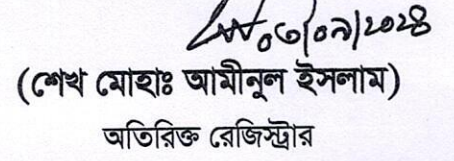 ০৩/০৯/২০২৪
(শেখ মোহাঃ আমীনূল ইসলাম)
অতিরিক্ত রেজিস্ট্রার